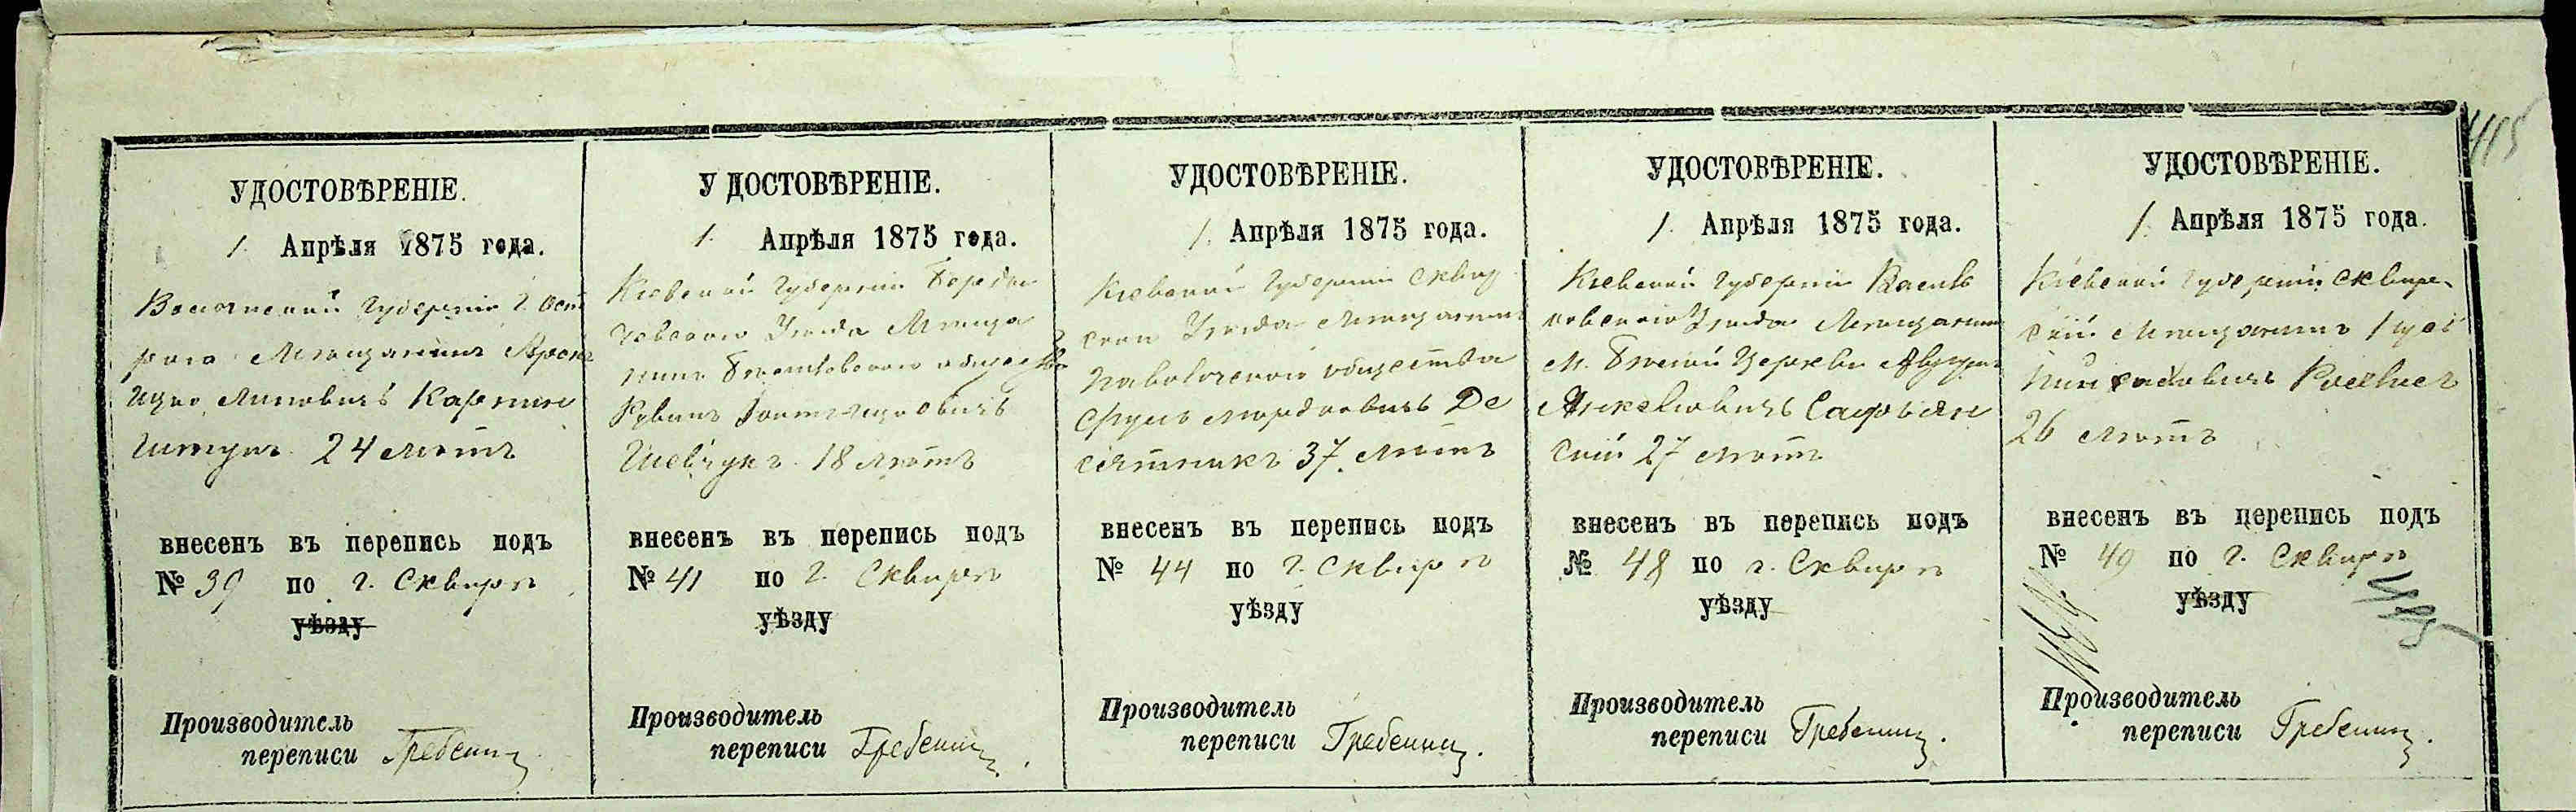 415
УДОСТОВѢРЕНІЕ.
1. Апрѣля 1875 года.
Волынской Губерніи г. Ост
рога Мѣщанинъ Аронъ
Ицко Липовичъ
24 лѣтъ
внесенъ въ перепись подъ
№ 39 по г. Сквирѣ
уѣзду
Производитель
переписи
УДОСТОВѢРЕНІЕ.
1. Апрѣля 1875 года.
Кіевской Губерніи Берди
чевскаго Уѣзда Мѣща
нинъ общества
Рувинъ
Шевчукъ 18 лѣтъ
внесенъ въ перепись подъ
№ 41 по г. Сквирѣ
уѣзду
Производитель
переписи
УДОСТОВѢРЕНІЕ.
1. Апрѣля 1875 года.
Кіевской Губерніи Сквир
скаго Уѣзда Мѣщанинъ
Паволочскаго общества
Сруль Мордковичъ Де
сятникъ 37 лѣтъ
внесенъ въ перепись подъ
№ 44 по г. Сквирѣ
уѣзду
Производитель
переписи
УДОСТОВѢРЕНІЕ.
1. Апрѣля 1875 года.
Кіевской Губерніи Василь
ковскаго Уѣзда Мѣщанинъ
м. Бѣлой Церкви
27 лѣтъ
внесенъ въ перепись подъ
№ 48 по г. Сквирѣ
уѣзду
Производитель
переписи
УДОСТОВѢРЕНІЕ.
1. Апрѣля 1875 года.
Кіевской Губерніи Сквир
скій Мѣщанинъ
26 лѣтъ
внесенъ въ перепись подъ
№ 49 по г. Сквирѣ
уѣзду
Производитель
переписи